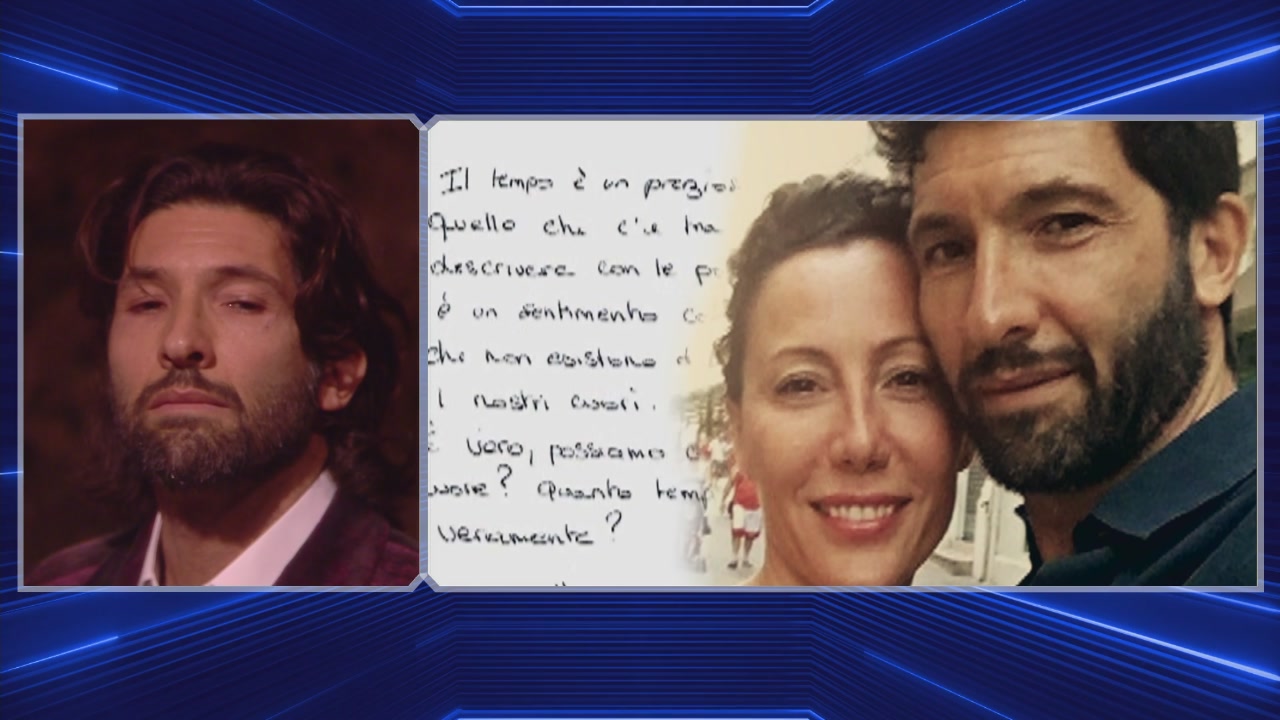 Il tempo è un prezios
Quello che c'è tra
descrivere con le p
è un sentimento c
che non esistono d
i nostri cuori.
È vero, possiamo
uore? Quanto temp
veramente?